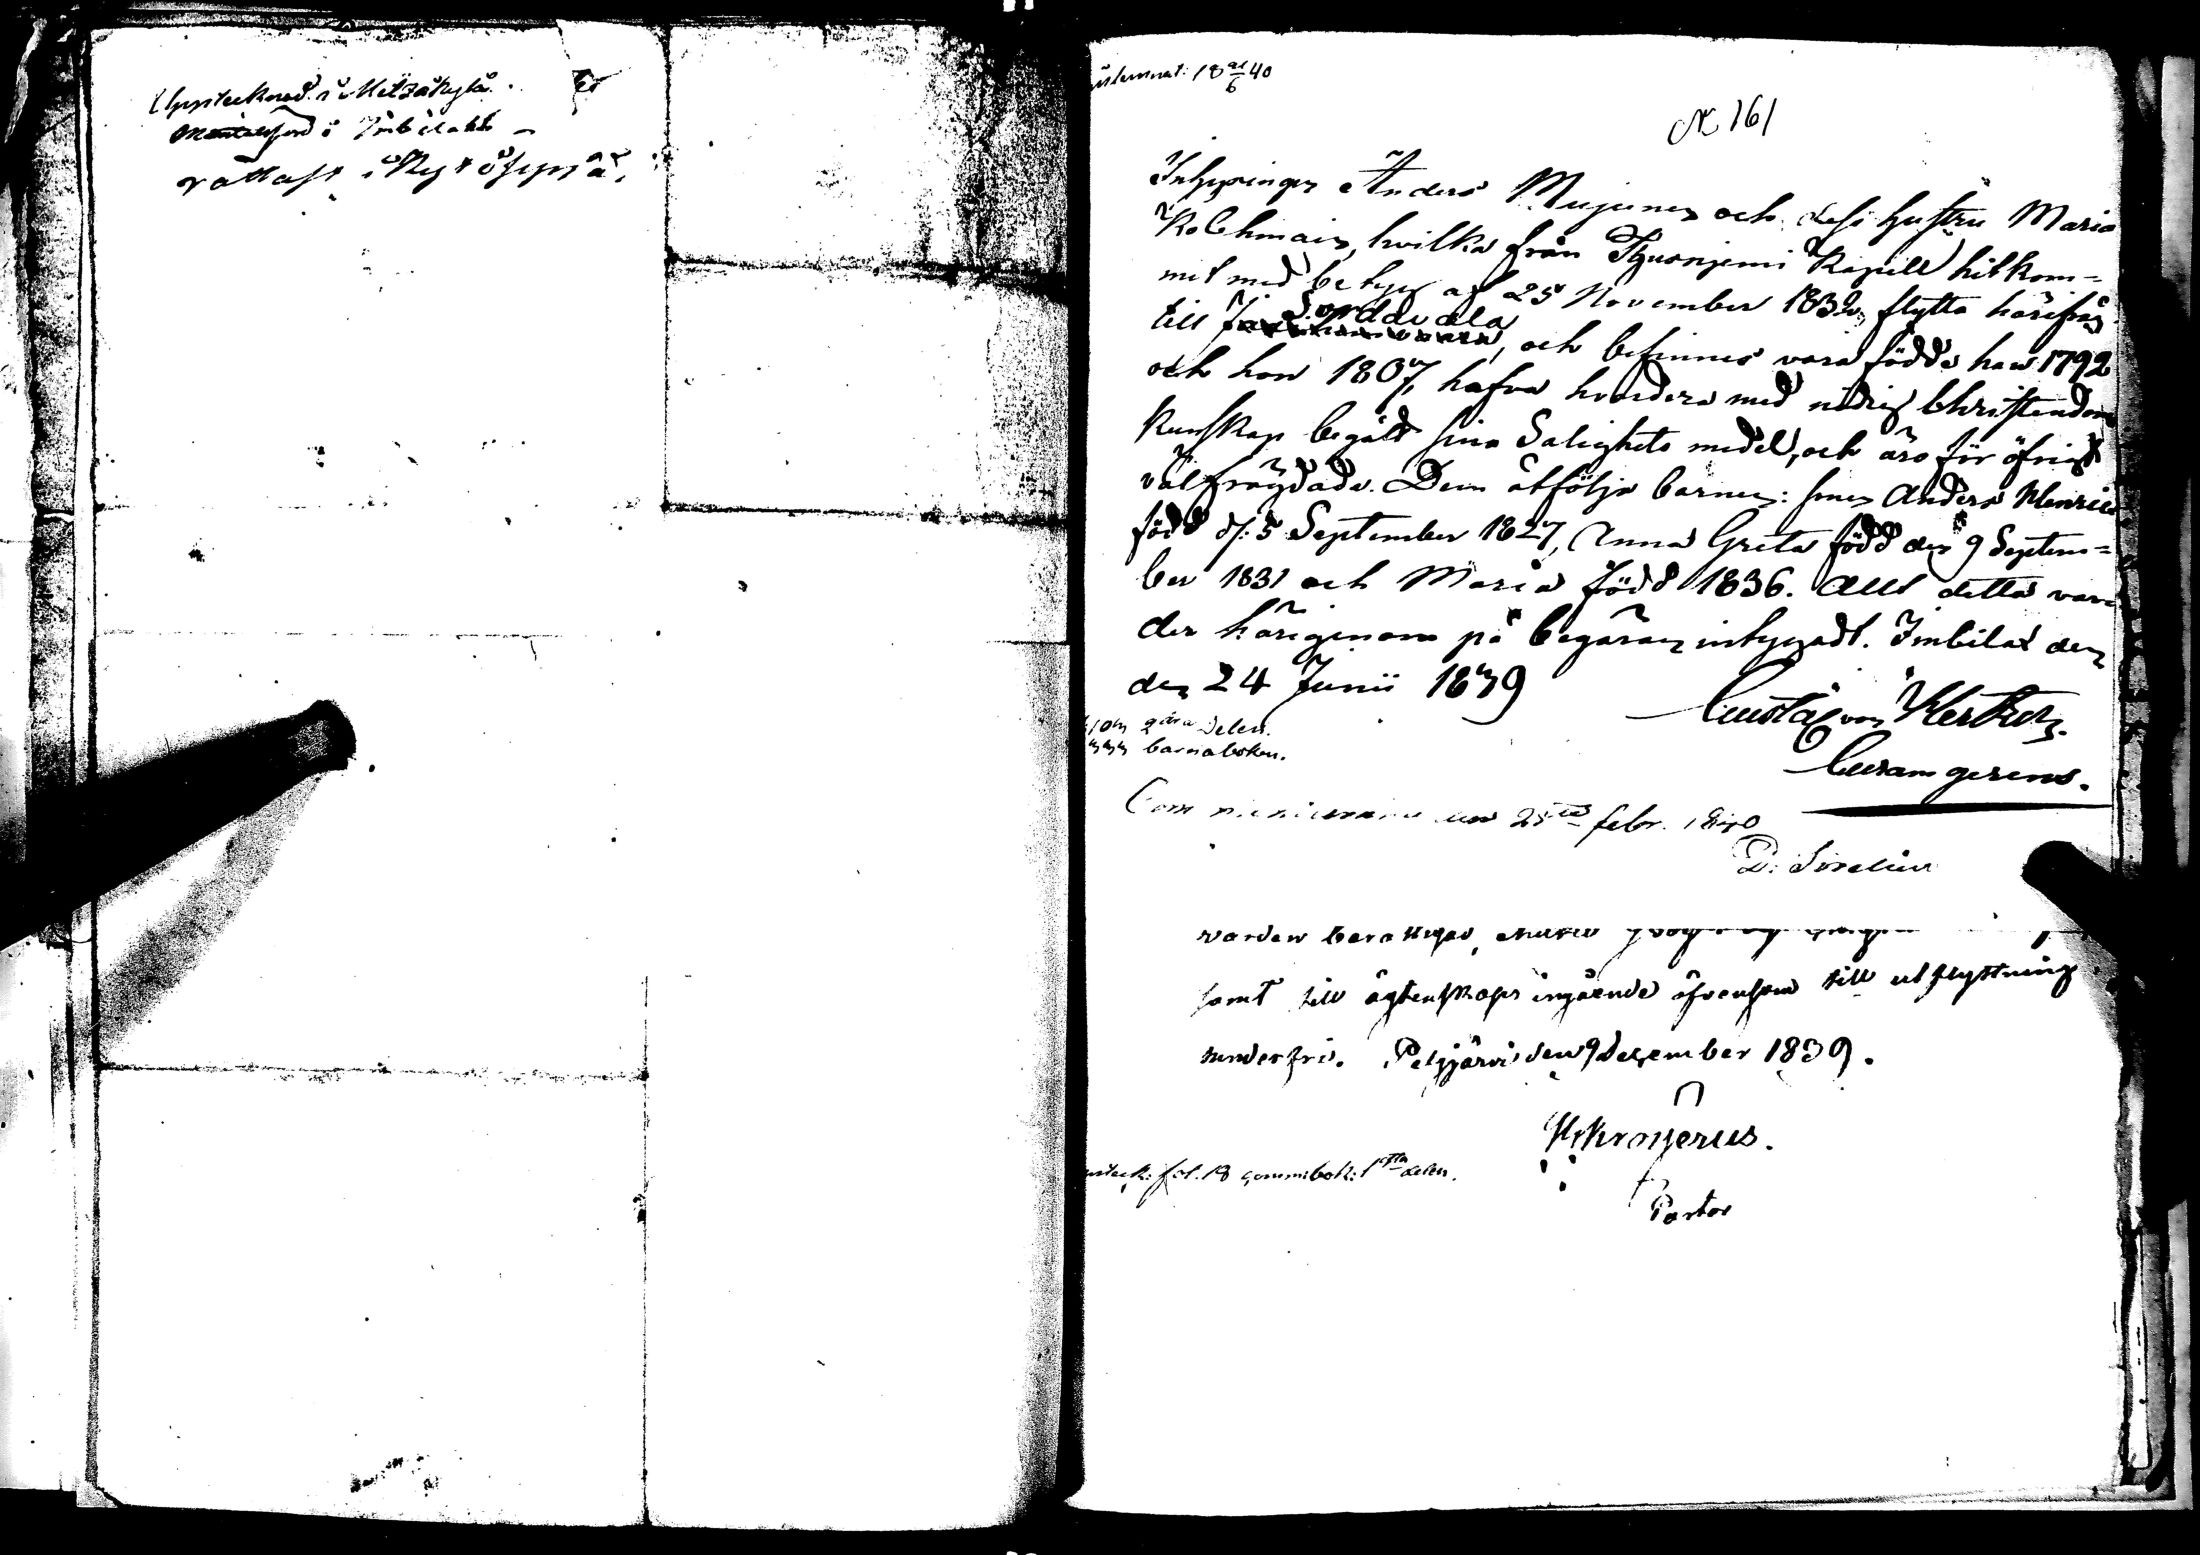 Uppteknad i Metzäkylä.
Mantalsförd i Imbilaks
vattast i Kyrösyrjä.
inlemnat: 18 21/6 40
N 161
Inhysingen Anders Mujunen och dess hustru Maria
Kolehmain, hvilka från Tjusniemi Kapell hitkom-
mit med betyg af 25 November 1832, flytta härifrån
till Sorddavala, och befinnes vara födde han 1792
och hon 1807, hafva hvardera med nödig Christendoms
kunskap begått sina Salighets medel, och äro för öfrigt
välfrägdade. Dem åtfölja barnen: sonen Anders Henric
född d. 5 September 1827, Anna Greta född den 9 Septem-
ber 1831 och Maria född 1836. Allt detta var
der härigenom på begäran intygadt. Imbilax den
den 24 Junii 1839
Gustaf von Hertzen.
Curam gerens.
2dra delen.
333 barnaboken.
den 25te febr. 1840
D. Sirelius
varden
samt till ägtenskaps ingående äfvensom till utflyttning
hinderfri. Pelgjärvi den 9 December 1839.
Pastor
fol. 18 comm:bok: 1sta delen.